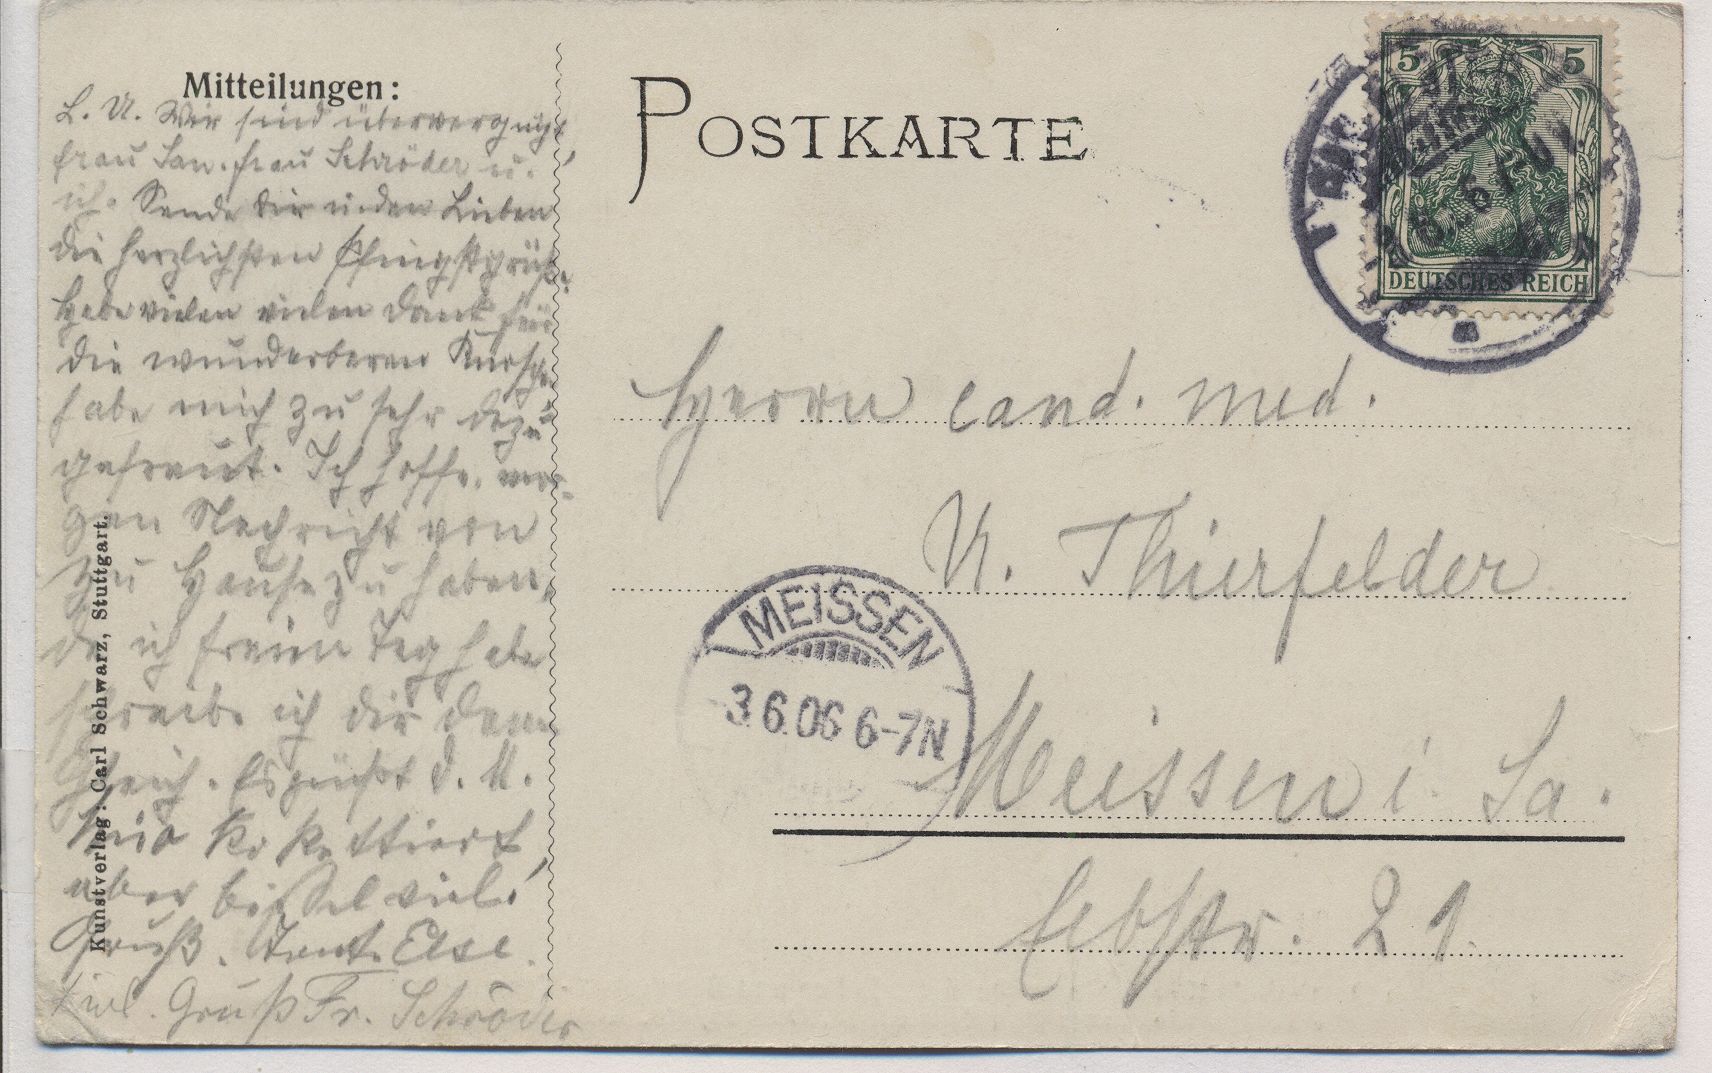 Mitteilungen:
L. U. Wir sind übervergnügt
Frau San. Frau Schröder u.
ich. Sende dir u. den Lieben
die herzlichsten Pfingstgrüße.
Habe vielen vielen Dank für
die wunderbaren
habe mich zu sehr dazu
gefreut. Ich hoffe, mor-
gen Nachricht von
zu Hause zu haben,
da ich freien Tag habe
schreibe ich dir dann
gleich. Es grüßt d. M.
kokettiert,
aber bissel viel!
Gruß. Tante Else.
Viel. Gruß Fr. Schröder
Kunstverlag: Carl Schwarz, Stuttgart.
POSTKARTE
5 5
DEUTSCHES REICH
Herrn cand. med.
U. Thierfelder
Meissen i. Sa.
Elbstr. 21.
MEISSEN
3.6.06 6-7N